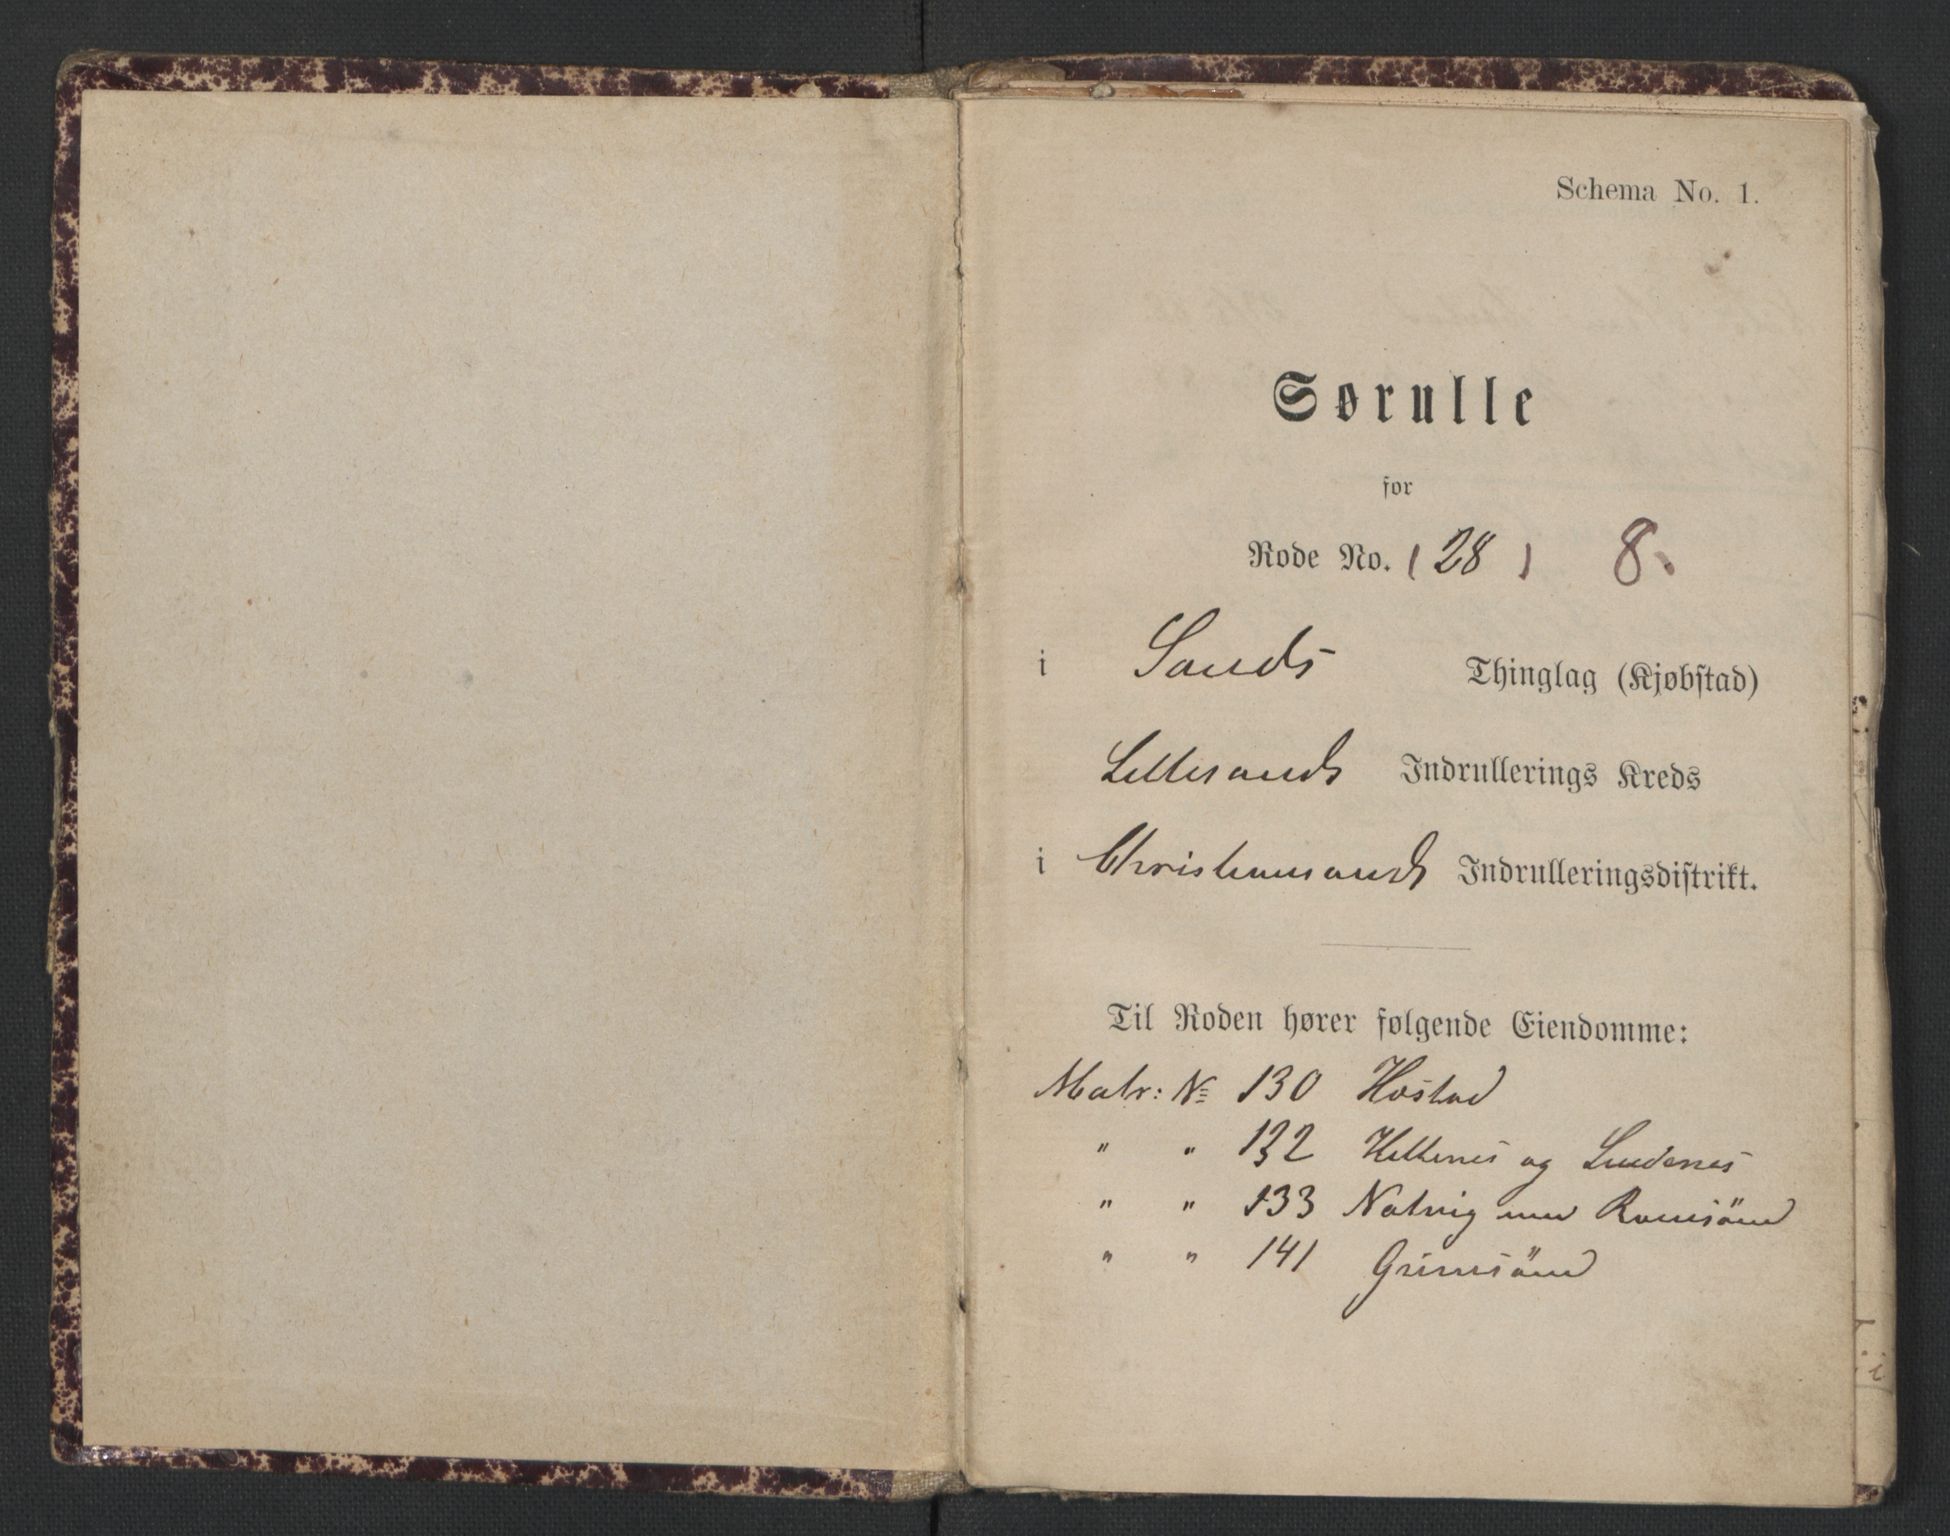 Schema No. 1.
Sørulle
for
Rode No. (28) 8.
i Sands Thinglag (Kjøbstad)
Lillesands Indrullerings Kreds
i Christianssands Indrulleringsdistrikt.
Til Roden hører følgende Eiendomme:
Matr: № 130 Høstad
" " 132 Hellenes og Lindenes
" " 133 Natvig med Ramsöen
" " 141 Grimsöen